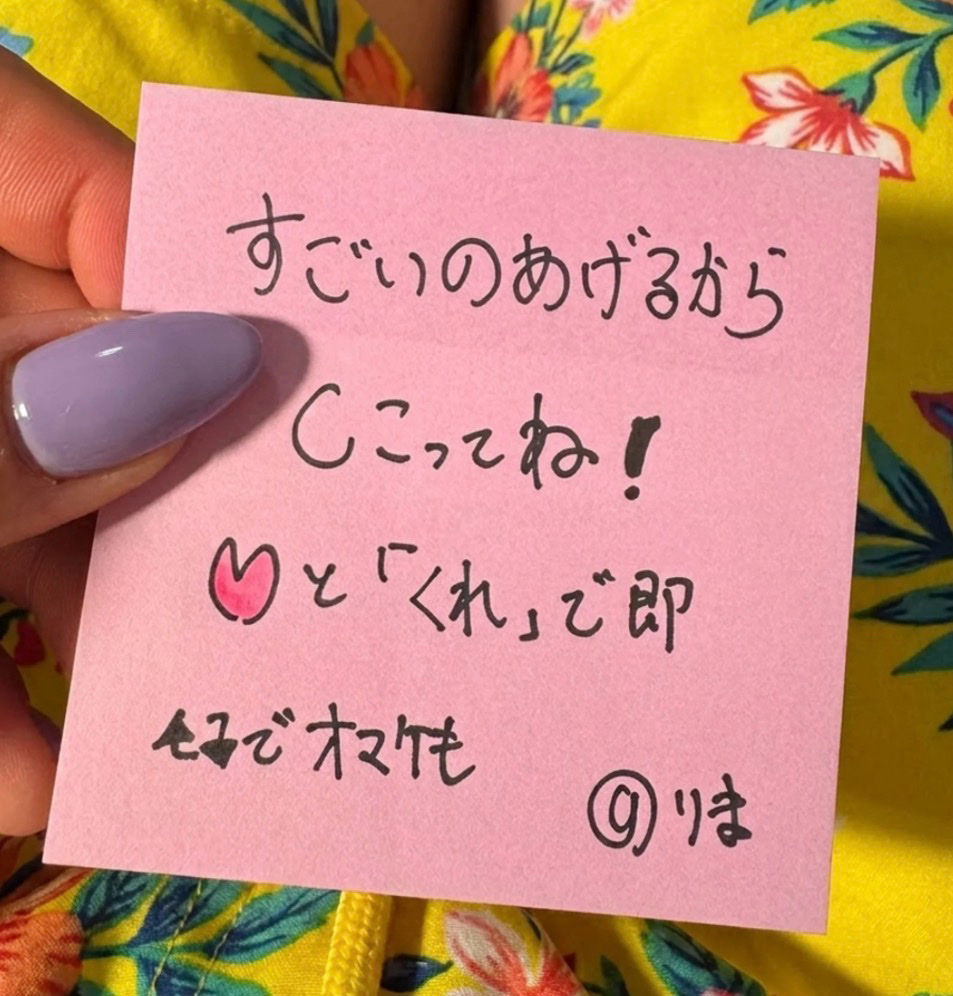 すごいのあげるから
しこってね!
と「くれ」で即
でオマケも
@りま